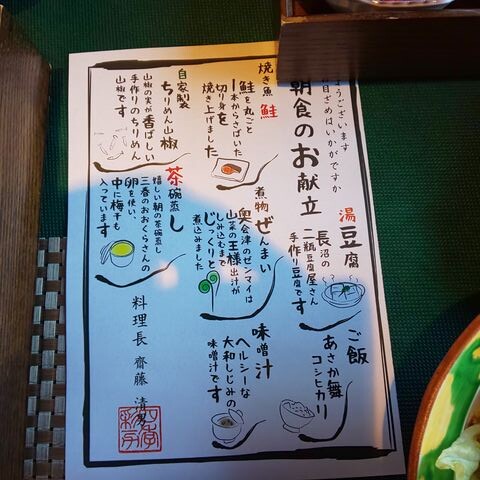 ようございます
お目ざめはいかがですか
朝食のお献立
湯豆腐
長沼の
二瓶豆腐屋さん
手作り豆腐です
ご飯
あさか舞
コシヒカリ
焼き魚 鮭
鮭を丸ごと
一本からさばいた
切り身を
焼き上げました
煮物 ぜんまい
奥会津のゼンマイは
山菜の王様 出汁が
しみ込むまで
じっくりと
煮込みました
味噌汁
ヘルシーな
大和しじみの
味噌汁です
自家製
ちりめん山椒
山椒の実が香ばしい
手作りのちりめん
山椒です
茶碗蒸し
嬉しい朝の茶碗蒸し
三春のおおくらさんの
卵を使い、
中に梅干も
入っています
料理長 齋藤